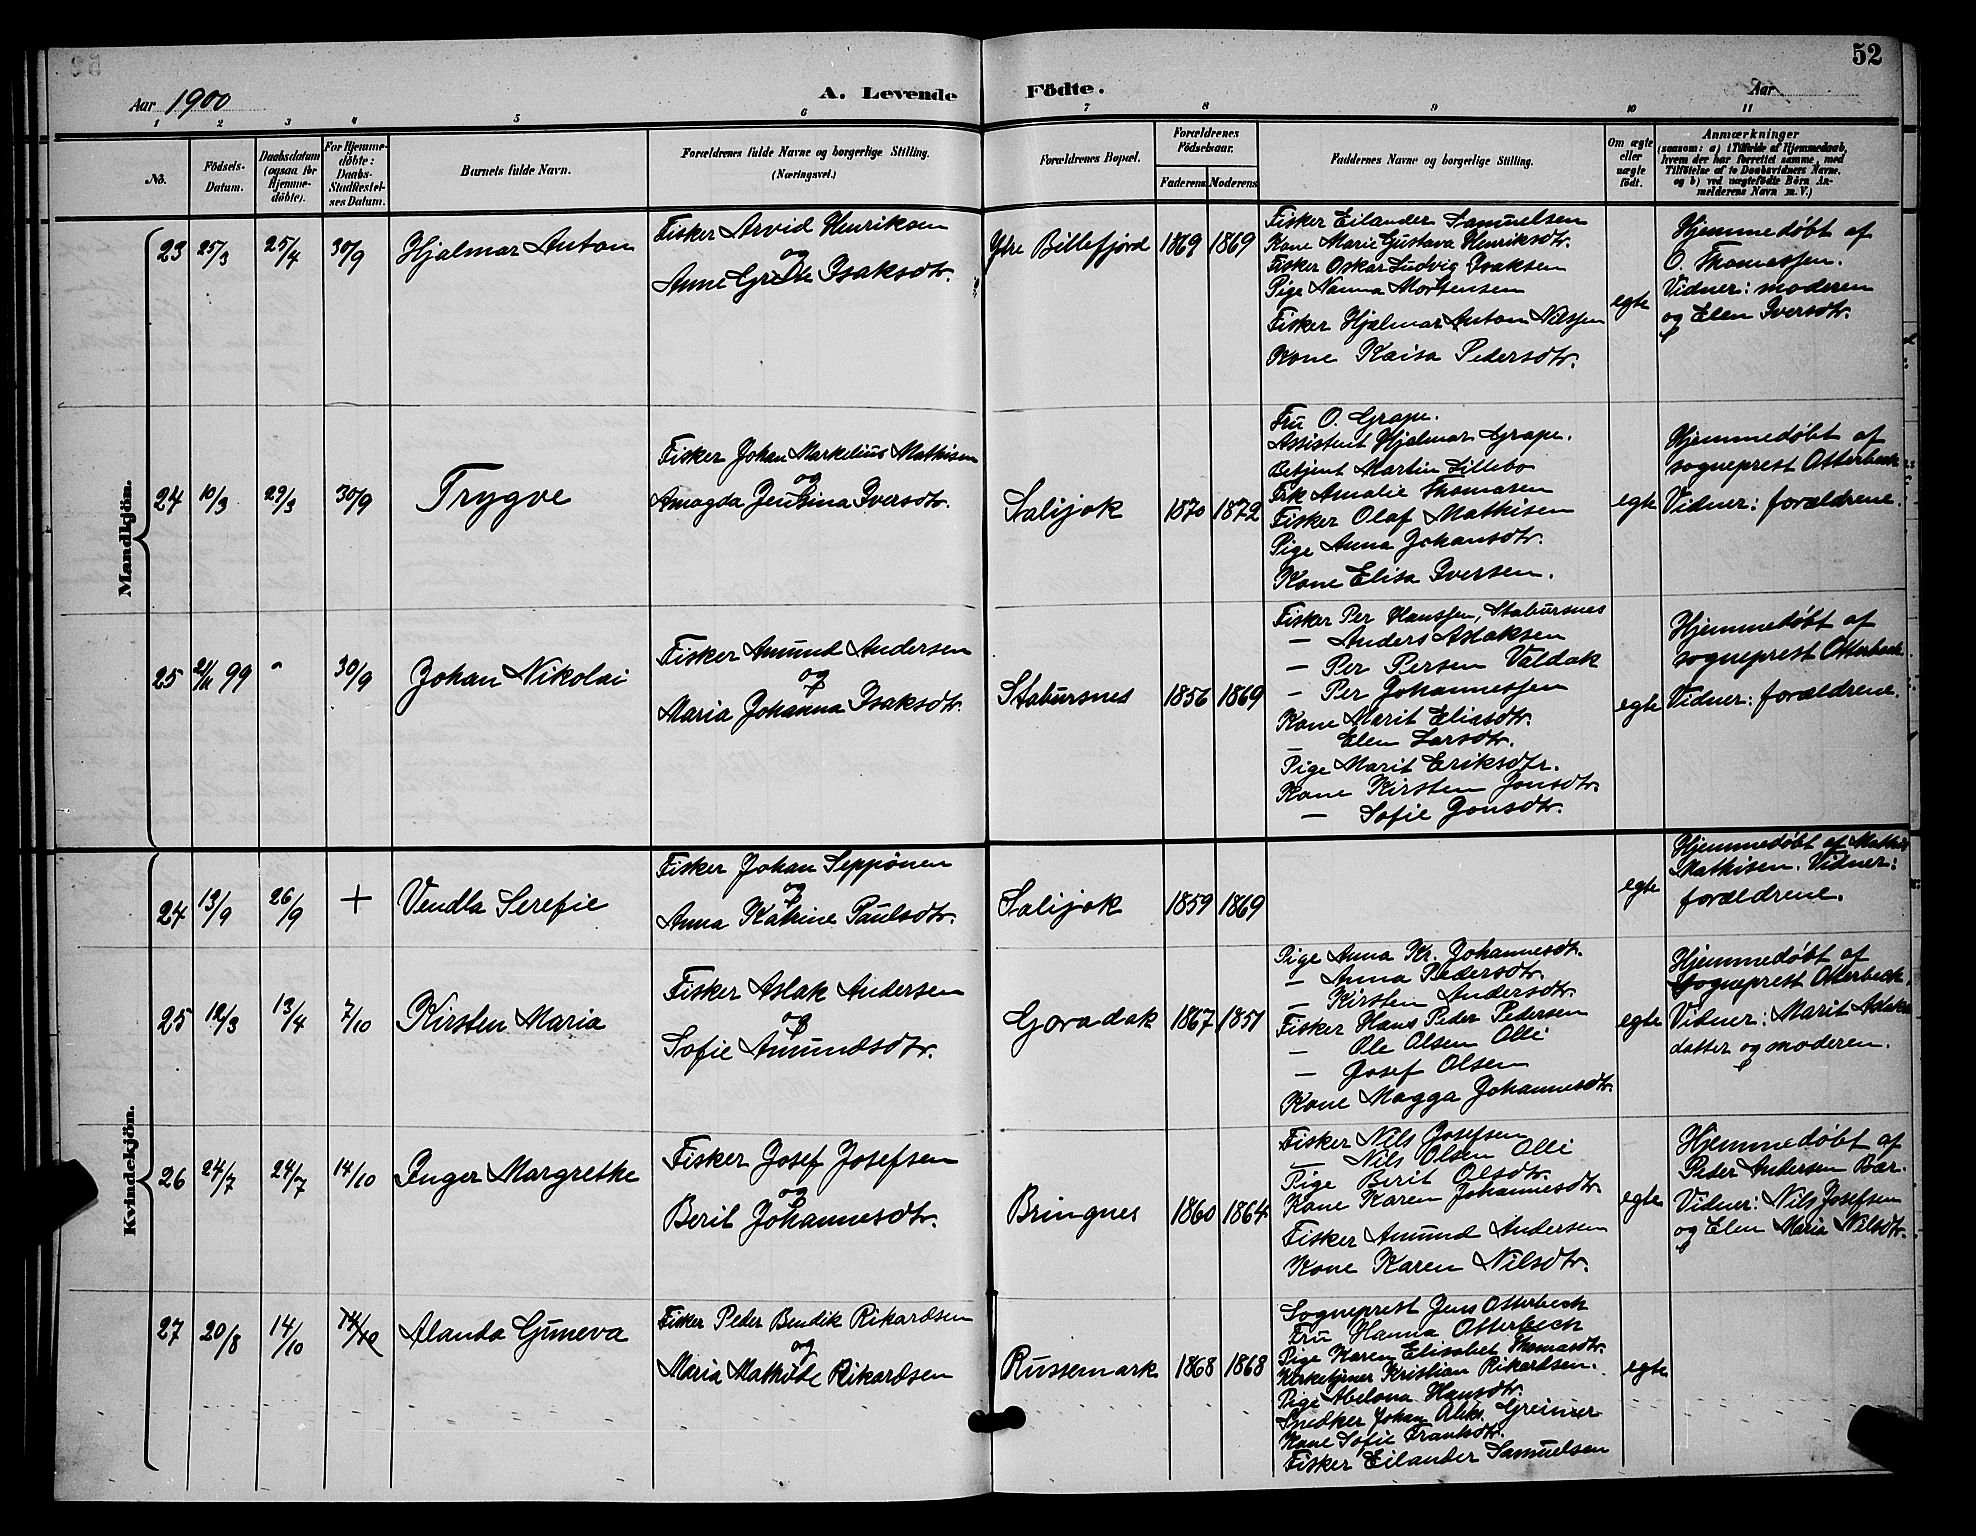 52
Aar 1900
A. Levende Födte.
Aar
1 2 3 4 5 6 7 8 9 10 11
No.
Födsels-Datum.
Daabsdatum (ogsaa for Hjemme-döbte).
For Hjemme-döbte: Daabs-Stadfæstel-ses Datum.
Barnets fulde Navn.
Forældrenes fulde Navne og borgerlige Stilling.
(Næringsvei.)
Forældrenes Bopæl.
Forældrenes Födselsaar.
Faderens Moderens
Faddernes Navne og borgerlige Stilling.
Om ægte eller uægte födt.
Anmærkninger
(saasom: a) i Tilfælde af Hjemmedaab, hvem der har forrettet samme, med Tilföielse af to Daabsvidners Navne, og b) ved uægtefödte Börn An-melderens Navn m. V.)
Mandkjön.
23 25/3 25/4 30/9 Hjalmar Anton
Fisker Arvid Henriksen
og
Anne Grethe Isaksdtr.
Ytre Billefjord 1869 1869
Fisker Eilander Samuelsen
Kone Marie Gustava Henriksdtr.
Fisker Oskar Ludvig Isaksen
Pige Nanna Mortensen
Fisker Hjalmar Anton Nilssen
Kone Kaisa Pedersdtr.
egte
Hjemmedøbt af
O. Thomassen.
Vidner: moderen
og Elen Iversdtr.
24 10/3 29/3 30/9 Trygve
Fisker Johan Markelius Mathisen
og
Amagda Jensina Iversdtr.
Salijok 1870 1872
Fru O. Grape.
Assistent Hjalmar Grape.
Betjent Martin Lillebo
Frk Amalie Thomasen
Fisker Olaf Mathisen
Pige Anna Johansdtr.
Kone Elisa Iversen.
egte
Hjemmedøbt af
sogneprest Otterbeck
Vidner: forældrene.
25 21/11 99 " 30/9 Johan Nikolai
Fisker Amund Andersen
og
Maria Johanna Isaksdtr.
Stabursnes 1856 1869
Fisker Per Hanssen, Stabursnes
— Anders Aslaksen
— Per Persen Valdak
— Per Johannessen
Kone Marit Eliasdtr.
— Elen Larsdtr.
Pige Marit Eriksdtr.
Kone Kirsten Jonsdtr.
— Sofie Jonsdtr.
egte
Hjemmedøbt af
sogneprest Otterbeck.
Vidner: forældrene.
Kvindekjön.
24 13/9 26/9 + Vendla Serefie
Fisker Johan Seppönen
og
Anna Katrine Paulsdtr.
Salijok 1859 1869
egte
Hjemmedøbt af Mathis
Mathisen. Vidner:
forældrene.
25 12/3 13/4 7/10 Kirsten Maria
Fisker Aslak Andersen
og
Sofie Amundsdtr.
Goradak 1867 1851
Pige Anna Kr. Johannesdtr.
— Anna Pedersdtr.
— Kirsten Andersdtr.
Fisker Hans Peder Pedersen
— Ole Olsen Olli
— Josef Olsen
Kone Magga Johannesdtr.
egte
Hjemmedøbt af
Sogneprest Otterbeck.
Vidner: Marit Aslaks
datter og moderen.
26 24/7 24/7 14/10 Inger Margrethe
Fisker Josef Josefsen
og
Berit Johannesdtr.
Bringnes 1860 1864
Fisker Nils Josefsen
— Nils Olsen Olli
Pige Berit Olsdtr.
Kone Karen Johannesdtr.
Fisker Amund Andersen
Kone Karen Nilsdtr.
egte
Hjemmedøbt af
Peder Andersen Bær.
Vidner: Nils Josefsen
og Elen Maria Nilsdtr.
27 20/8 14/10 14/10 Alanda Guneva
Fisker Peder Bendik Rikardsen
og
Maria Mathilde Rikardsen
Russemark 1868 1868
Sogneprest Jens Otterbeck
Fru Hanna Otterbech
Pige Karen Elisabet Thomasdtr.
Kirketjener Kristian Rikardsen.
Pige Abelona Hansdtr.
Snedker Johan Aleks. Greiner
Kone Sofie Frantsdtr.
Fisker Eilander Samuelsen
egte